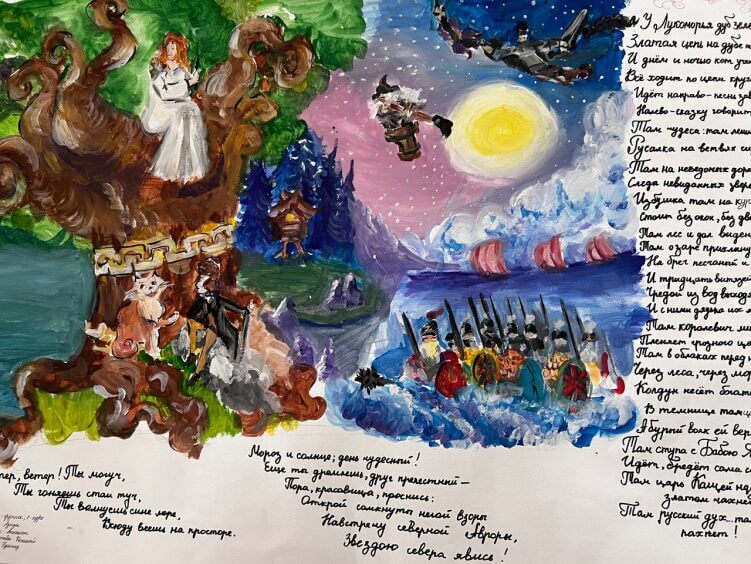 У Лукоморья дуб зел
Златая цепь на дубе
И днём и ночью кот уч
Всё ходит по цепи кру
Идёт направо-песнь зав
Налево-сказку говорит
Там чудеса: там леш
Русалка на ветвях си
Там на неведомых доро
Следы невиданных звер
Избушка там на кур
Стоит без окон, без дв
Там лес и дол виден
Там о заре прихлын
На брег песчаный и
И тридцать витязей
Чредой из вод выход
И с ними дядька их м
Там королевич ми
Пленяет грозного ца
Там в облаках перед
Через леса, через мор
Колдун несёт богат
В темнице там ц
А бурый волк ей вер
Там ступа с Бабою Я
Идёт, бредёт сама с
Там царь Кащей на
златом чахне
Там русский дух... та
пахнет!
тер, ветер! Ты могуч,
Ты гоняешь стаи туч,
Ты волнуешь сине море,
Всюду веешь на просторе.
Мороз и солнце; день чудесный!
Еще ты дремлешь, друг прелестный –
Пора, красавица, проснись:
Открой сомкнуты негой взоры
Навстречу северной Авроры,
Звездою севера явись!
группа, 1 курс